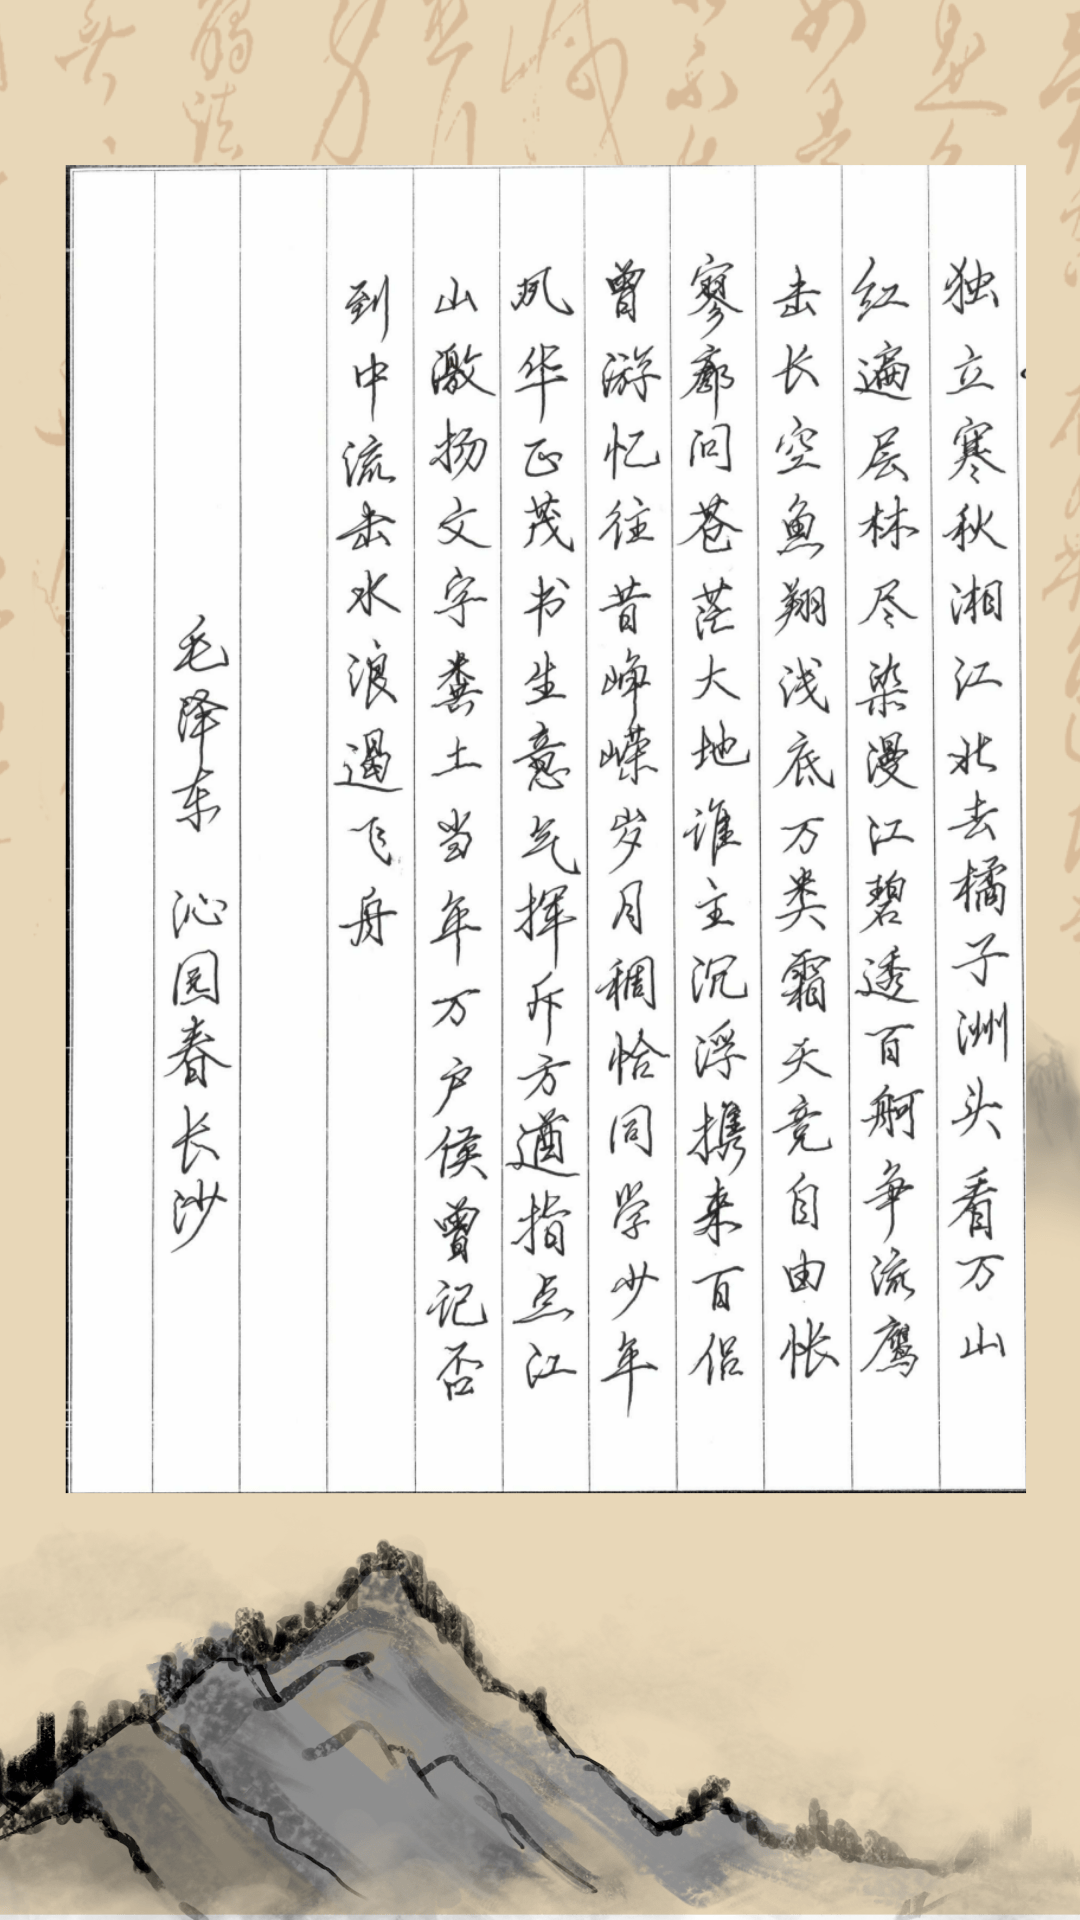 独立寒秋湘江北去橘子洲头看万山
红遍层林尽染漫江碧透百舸争流鹰
击长空鱼翔浅底万类霜天竞自由怅
寥廓问苍茫大地谁主沉浮携来百侣
曾游忆往昔峥嵘岁月稠恰同学少年
风华正茂书生意气挥斥方遒指点江
山激扬文字粪土当年万户侯曾记否
到中流击水浪遏飞舟
毛泽东 沁园春长沙